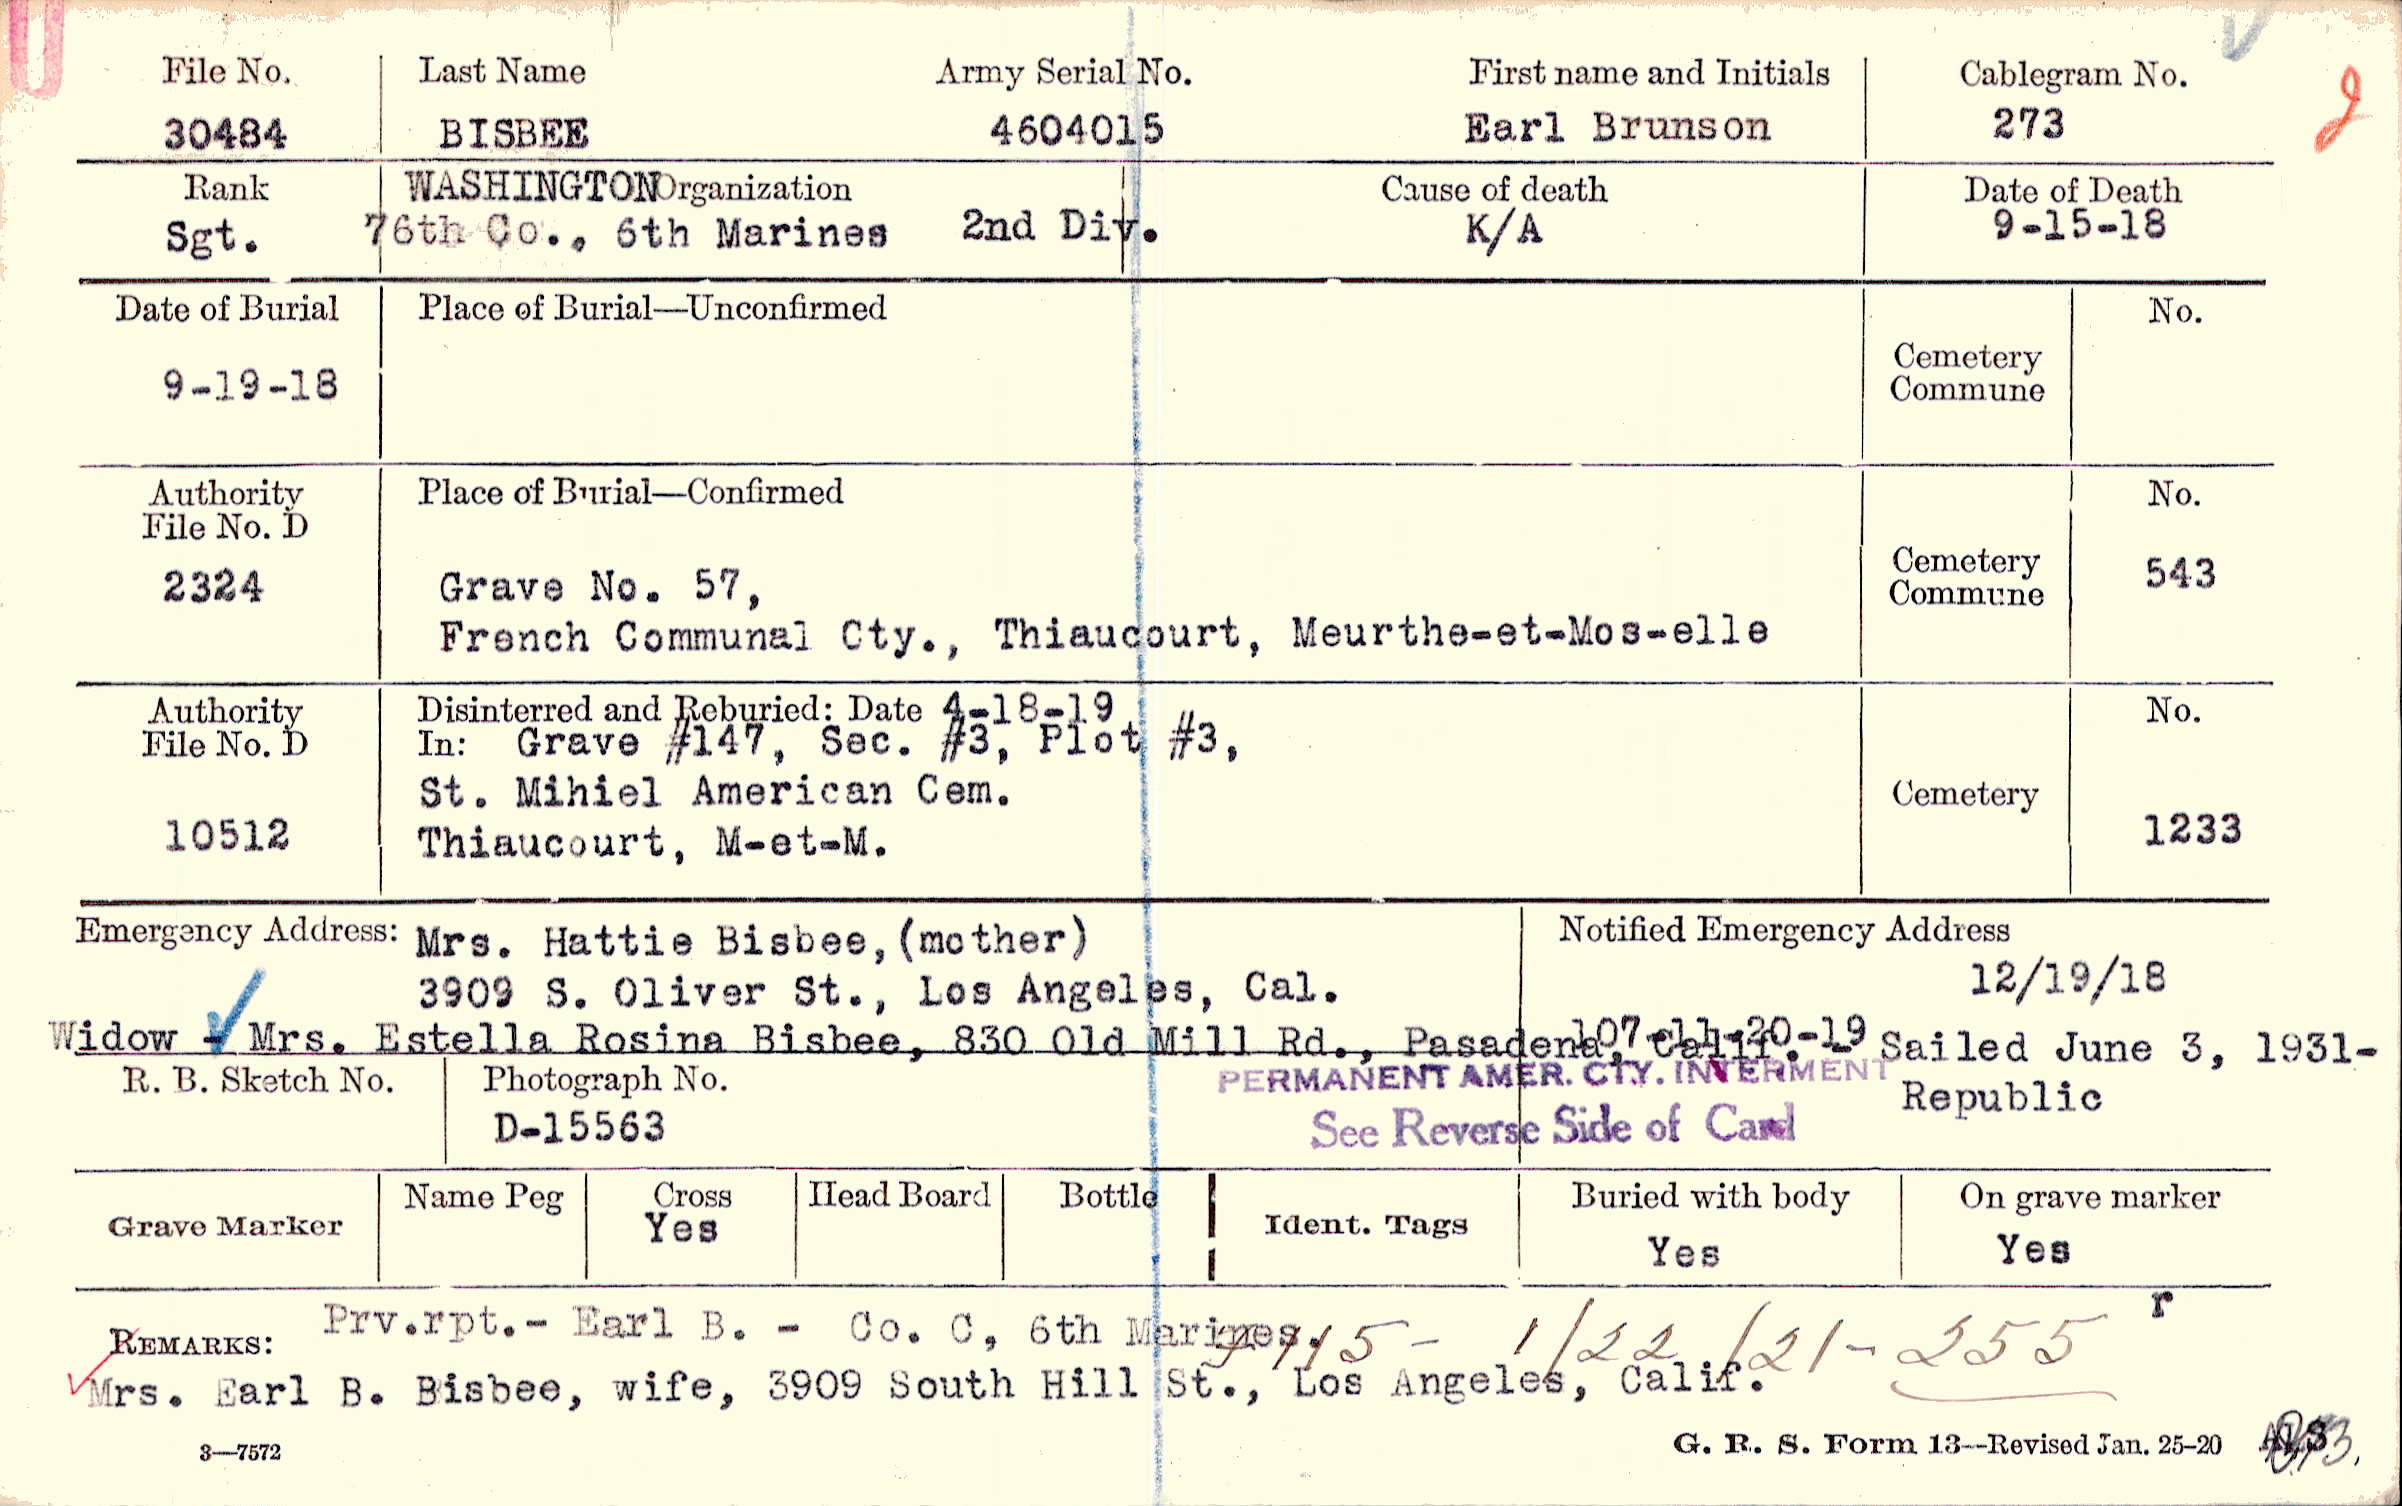 File No. Last Name Army Serial No. First name and Initials Cablegram No.
30484 BISBEE 4604015 Earl Brunson 273
2
Rank WASHINGTON Organization Cause of death Date of Death
Sgt. 76th Co., 6th Marines 2nd Div. K/A 9-15-18
Date of Burial Place of Burial—Unconfirmed No.
9-19-18 Cemetery
Commune
Authority Place of Burial—Confirmed No.
File No. D
2324 Grave No. 57, Cemetery 543
Commune
French Communal Cty., Thiaucourt, Meurthe-et-Mos-elle
Authority Disinterred and Reburied: Date 4-18-19 No.
File No. D In: Grave #147, Sec. #3, Plot #3,
St. Mihiel American Cem. Cemetery
10512 Thiaucourt, M-et-M. 1233
Emergency Address: Mrs. Hattie Bisbee, (mother) Notified Emergency Address
3909 S. Oliver St., Los Angeles, Cal. 12/19/18
107-11-20-19
Widow - Mrs. Estella Rosina Bisbee, 830 Old Mill Rd., Pasadena, Calif. - Sailed June 3, 1931-
Republic
R. B. Sketch No. Photograph No. PERMANENT AMER. CTY. INTERMENT
D-15563 See Reverse Side of Card
Grave Marker Name Peg Cross Head Board Bottle Ident. Tags Buried with body On grave marker
Yes Yes Yes
r
REMARKS: Prv.rpt.- Earl B. - Co. C, 6th Marines.
115 - 1/22/21 - 255
Mrs. Earl B. Bisbee, wife, 3909 South Hill St., Los Angeles, Calif.
3—7572 G. R. S. Form 13—Revised Jan. 25-20